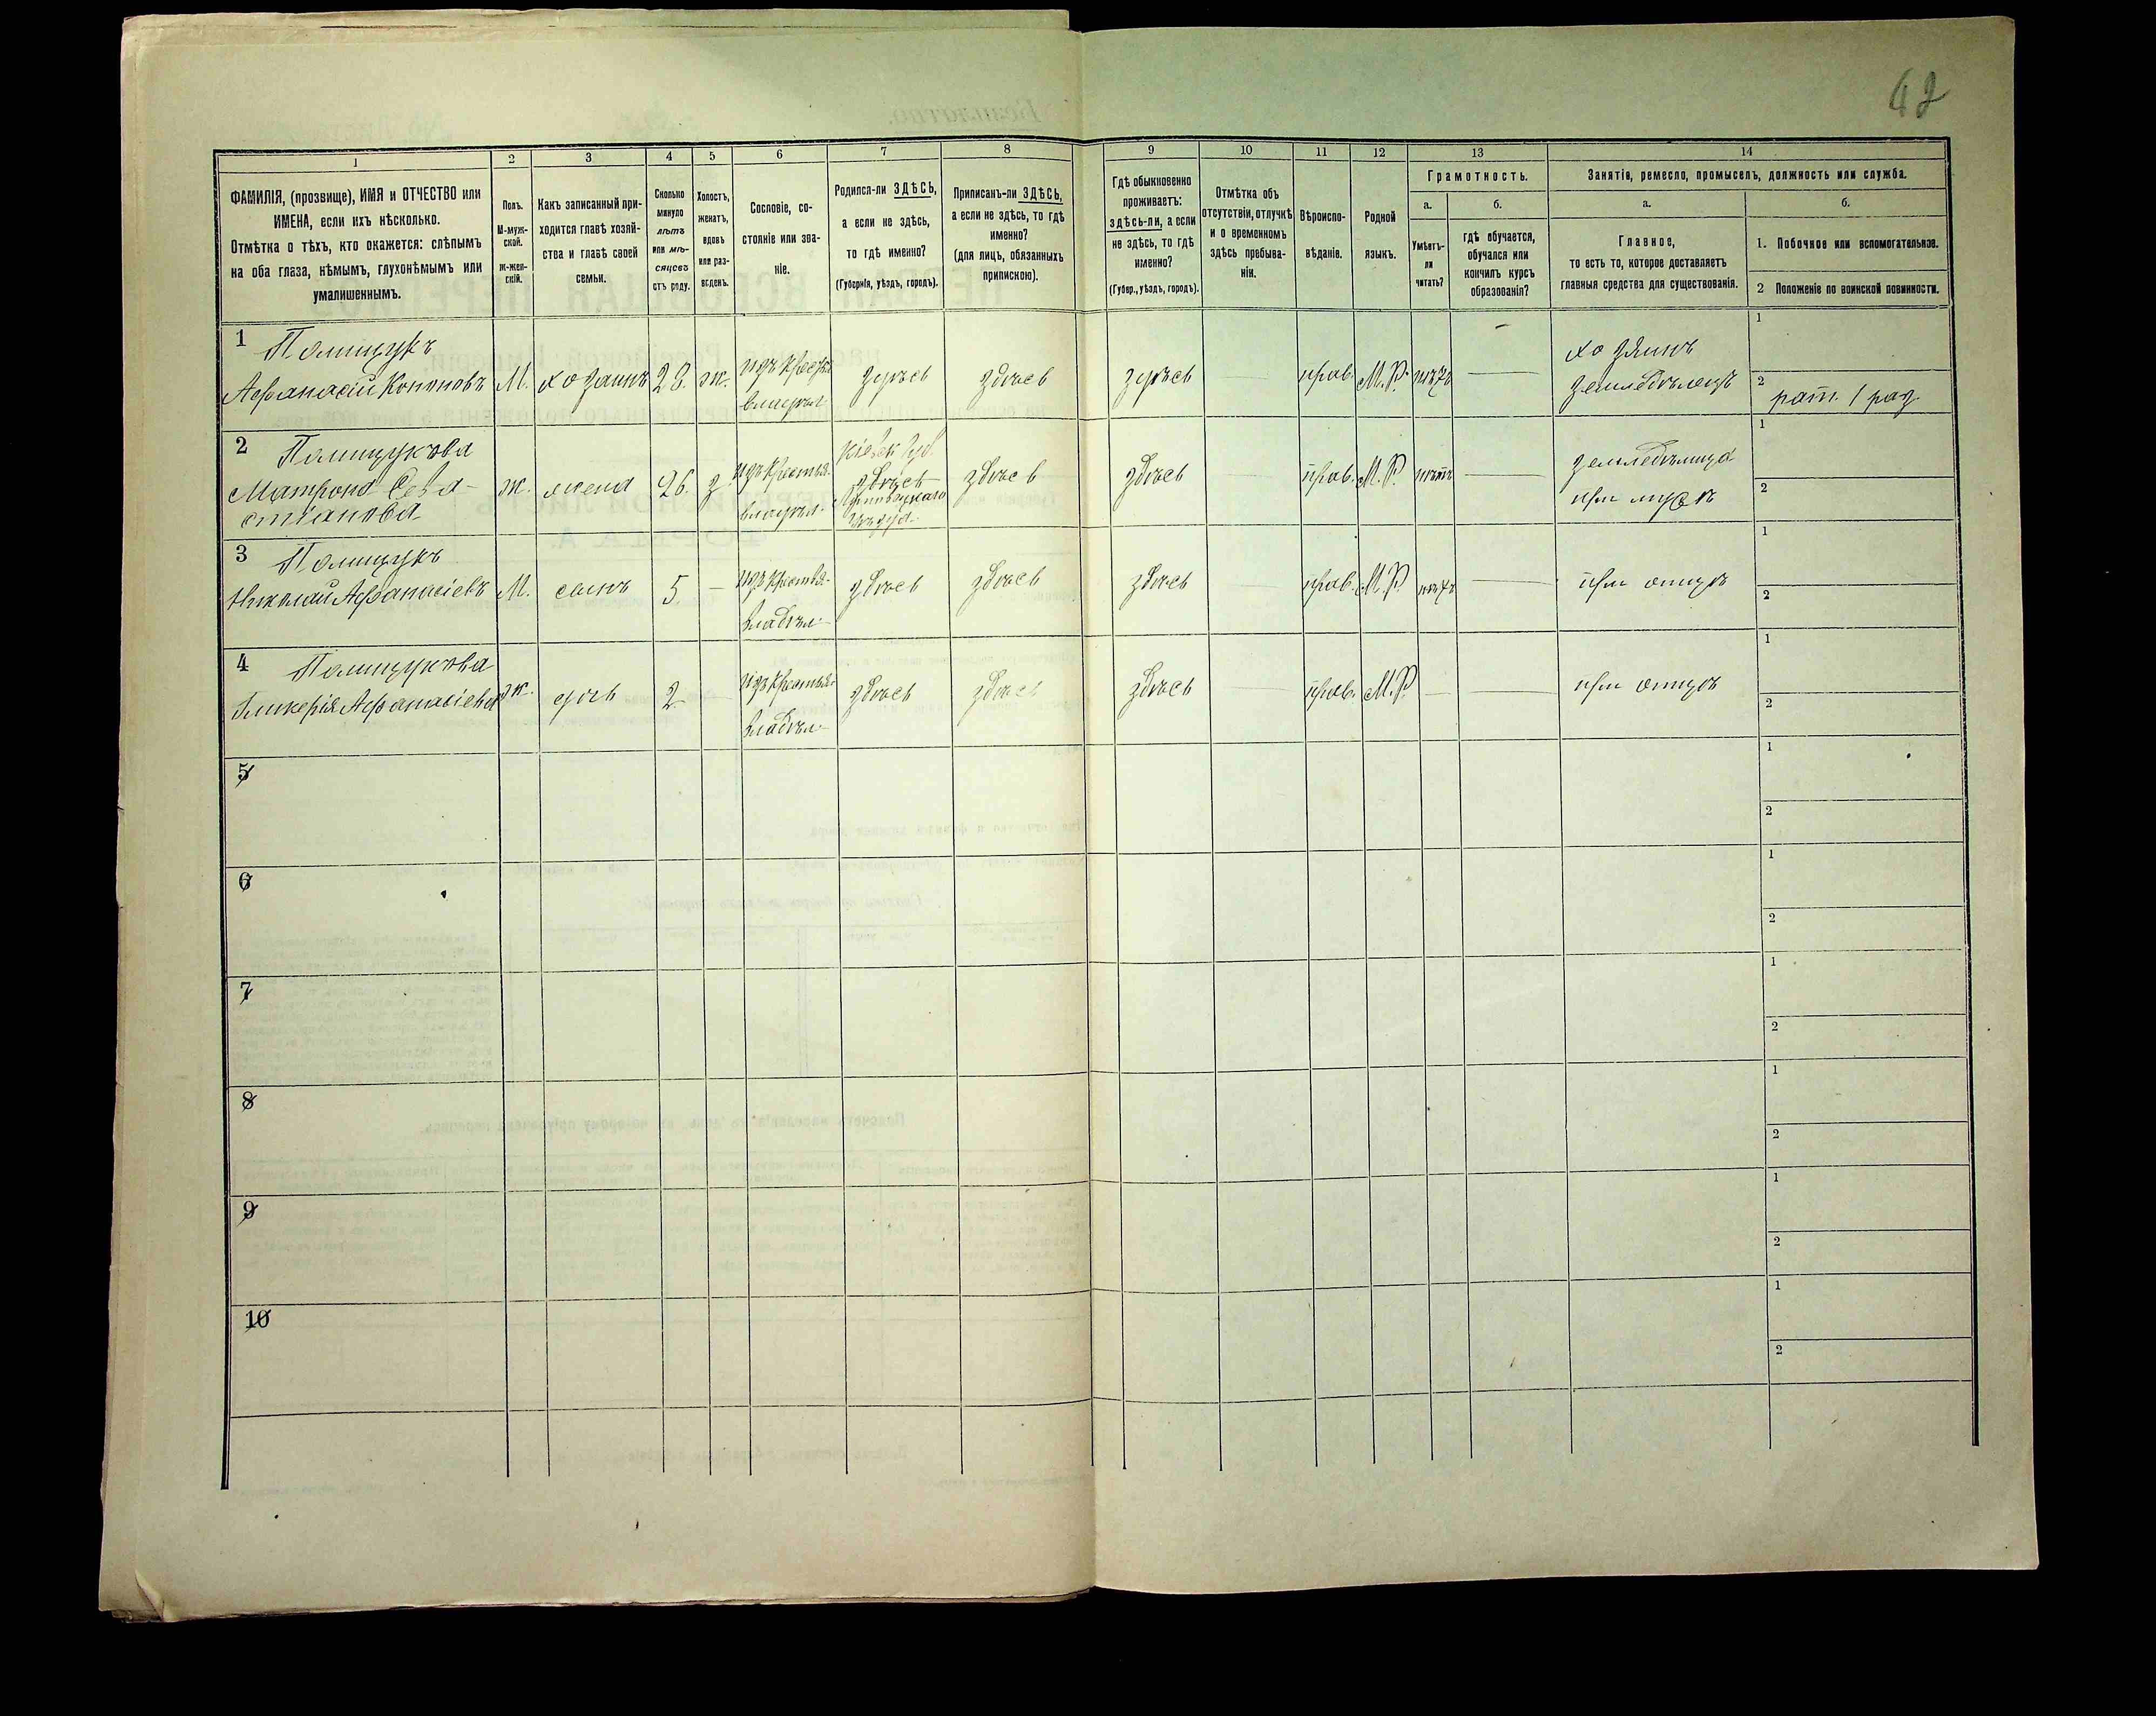 42
1
2
3
4
5
6
7
8
9
10
11
12
13
14
ФАМИЛІЯ, (прозвище), ИМЯ и ОТЧЕСТВО или
ИМЕНА, если ихъ нѣсколько.
Отмѣтка о тѣхъ, кто окажется: слѣпымъ
на оба глаза, нѣмымъ, глухонѣмымъ или
умалишеннымъ.
Полъ.
М-муж-
ской.
Ж-жен-
скій.
Какъ записанный при-
ходится главѣ хозяй-
ства и главѣ своей
семьи.
Сколько
минуло
лѣтъ
или мѣ-
сяцевъ
отъ роду.
Холостъ,
женатъ,
вдовъ
или раз-
веденъ.
Сословіе, со-
стояніе или зва-
ніе.
Родился-ли ЗДѢСЬ,
а если не здѣсь,
то гдѣ именно?
(Губернія, уѣздъ, городъ).
Приписанъ-ли ЗДѢСЬ,
а если не здѣсь, то гдѣ
именно?
(для лицъ, обязанныхъ
припискою).
Гдѣ обыкновенно
проживаетъ:
здѣсь-ли, а если
не здѣсь, то гдѣ
именно?
(Губер., уѣздъ, городъ).
Отмѣтка объ
отсутствіи, отлучкѣ
и о временномъ
здѣсь пребыва-
ніи.
Вѣроиспо-
вѣданіе.
Родной
языкъ.
Грамотность.
а.
Умѣетъ-
ли
читать?
б.
гдѣ обучается,
обучался или
кончилъ курсъ
образованія?
Занятія, ремесло, промыселъ, должность или служба.
а.
Главное,
то есть то, которое доставляетъ
главныя средства для существованія.
б.
1. Побочное или вспомогательное.
2 Положеніе по воинской повинности.
1 Полищукъ
Афанасій Кононовъ
М.
хозяинъ
28.
ж.
изъ крестья
владѣл
здѣсь
здѣсь
здѣсь
прав.
М.Р.
нѣтъ
хозяинъ
земледѣлецъ
1
2
рат. 1 раз
2 Полищукова
Матрона Сева-
стіанова
ж.
жена
26.
з.
изъ крестья.
владѣл.
Кіевск губ.
здѣсь
Липовецкаго
уѣзда
здѣсь
здѣсь
прав.
М.Р.
нѣтъ
земледѣлица
при мужѣ
1
2
3 Полищукъ
Николай Афанасіевъ
М.
сынъ
5
изъ крестья-
владѣл.
здѣсь
здѣсь
здѣсь
прав.
М.Р.
нѣтъ
при отцѣ
1
2
4 Полищукова
Гликерія Афанасіева
ж.
дочь
2
изъ крестья
владѣл.
здѣсь
здѣсь
здѣсь
прав.
М.Р.
при отцѣ
1
2
5
1
2
6
1
2
7
1
2
8
1
2
9
1
2
10
1
2